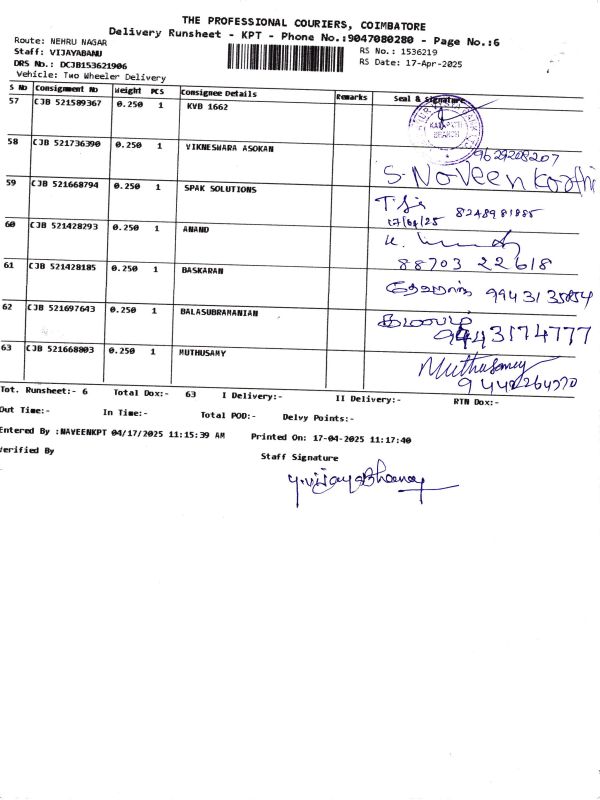 THE PROFESSIONAL COURIERS, COIMBATORE
Delivery Runsheet - KPT - Phone No.:9047080280 - Page No.:6
Route: NEHRU NAGAR
RS No.: 1536219
Staff: VIJAYABANU
RS Date: 17-Apr-2025
DRS No.: DCJB153621906
Vehicle: Two Wheeler Delivery
S No Consignment No Weight PCS Consignee Details Remarks Seal & Signature
57 CJB 521589367 0.250 1 KVB 1662
58 CJB 521736390 0.250 1 VIKNESWARA ASOKAN
9629208207
S. Naveen
59 CJB 521668794 0.250 1 SPAK SOLUTIONS
17/04/25 8248981885
60 CJB 521428293 0.250 1 ANAND
88703 22618
61 CJB 521428185 0.250 1 BASKARAN
62 CJB 521697643 0.250 1 BALASUBRAMANIAN
9443174777
63 CJB 521668803 0.250 1 MUTHUSAMY
Muthusamy
Tot. Runsheet:- 6 Total Dox:- 63 I Delivery:- II Delivery:- RTN Dox:-
Out Time:- In Time:- Total POD:- Delvy Points:-
Entered By :NAVEENKPT 04/17/2025 11:15:39 AM Printed On: 17-04-2025 11:17:40
Verified By
Staff Signature